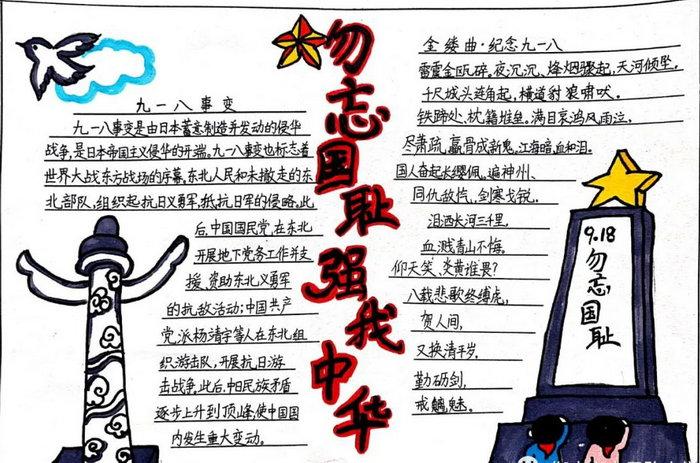 勿忘国耻强我中华
九一八事变
九一八事变是由日本蓄意制造并发动的侵华
战争,是日本帝国主义侵华的开端。九一八事变也标志着
世界大战东方战场的序幕。东北人民和未撤走的东
北部队,组织起抗日义勇军,抵抗日军的侵略。此
后,中国国民党,在东北
开展地下党务工作并支
援、资助东北义勇军
的抗敌活动;中国共产
党,派杨靖宇等人在东北组
织游击队,开展抗日游
击战争。此后,中日民族矛盾
逐步上升到顶峰,使中国国
内发生重大变动。
金缕曲·纪念九一八
雷震金瓯碎。夜沉沉、烽烟骤起,天河倾坠。
千尺城头连角起,横道豺狼啸吠。
铁蹄处、枕籍堆垒。满目哀鸿风雨泣。
尽萧疏,羸骨成新鬼。江海暗,血和泪。
国人奋起长缨佩。遍神州、
同仇敌忾,剑寒戈锐。
泪洒长河三千里,
血溅青山不悔。
仰天笑、炎黄谁畏?
八载悲歌终缚虎,
贺人间,
又换清平岁。
勤砺剑,
戒魑魅。
9.18
勿忘国耻